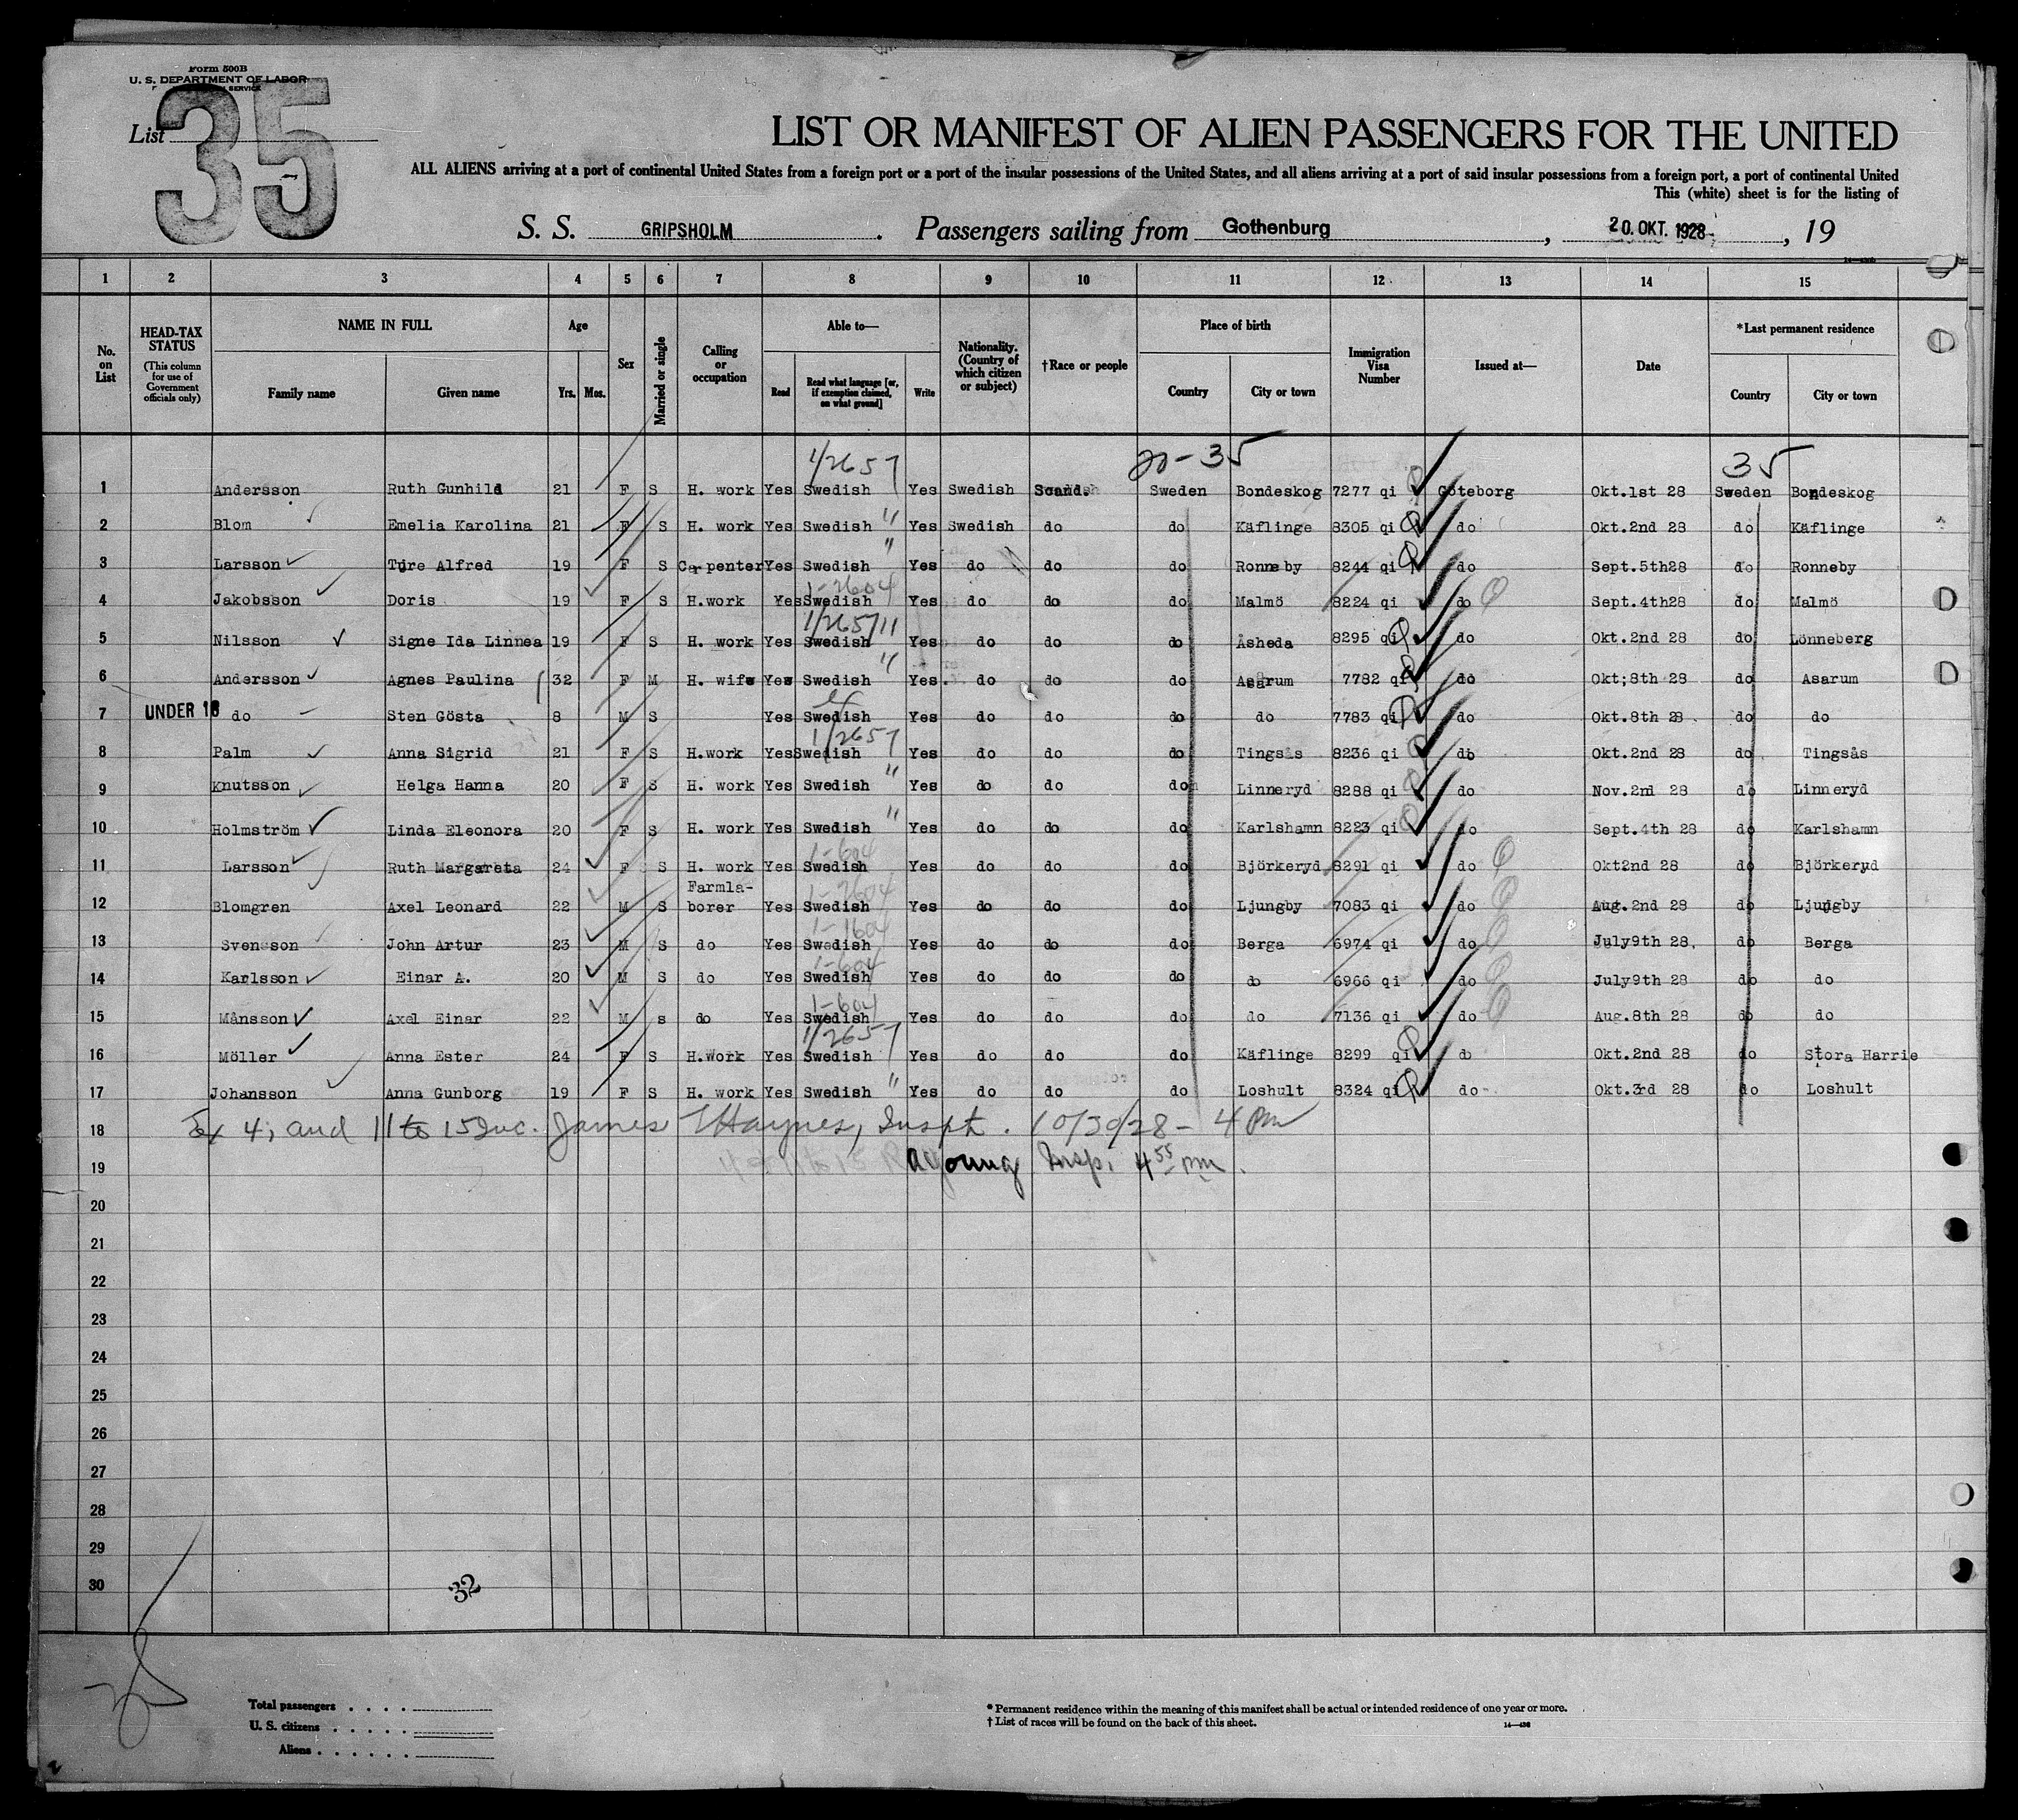 Form 500B
U. S. DEPARTMENT OF LABOR
SERVICE
List
35
LIST OR MANIFEST OF ALIEN PASSENGERS FOR THE UNITED
ALL ALIENS arriving at a port of continental United States from a foreign port or a port of the insular possessions of the United States, and all aliens arriving at a port of said insular possessions from a foreign port, a port of continental United
This (white) sheet is for the listing of
S. S. GRIPSHOLM. Passengers sailing from Gothenburg, 20. OKT. 1928, 19
1 2 3 4 5 6 7 8 9 10 11 12 13 14 15
No. on List
HEAD-TAX STATUS
(This column for use of Government officials only)
NAME IN FULL
Family name Given name
Age
Yrs. Mos.
Sex
Married or single
Calling or occupation
Able to—
Read
Read what language [or, if exemption claimed, on what ground]
Write
Nationality. (Country of which citizen or subject)
†Race or people
Place of birth
Country City or town
Immigration Visa Number
Issued at—
Date
*Last permanent residence
Country City or town
1/2657 20-35 35
1 Andersson Ruth Gunhild 21 F S H. work Yes Swedish Yes Swedish Scand. Sweden Bondeskog 7277 qi Göteborg Okt.1st 28 Sweden Bondeskog
2 Blom Emelia Karolina 21 F S H. work Yes Swedish " Yes Swedish do do Käflinge 8305 qi do Okt.2nd 28 do Käflinge
3 Larsson Ture Alfred 19 F S Carpenter Yes Swedish " Yes do do do Ronneby 8244 qi do Sept.5th28 do Ronneby
1-2604
4 Jakobsson Doris 19 F S H.work Yes Swedish Yes do do do Malmö 8224 qi do Sept.4th28 do Malmö
1/2657
5 Nilsson Signe Ida Linnea 19 F S H. work Yes Swedish Yes do do do Åsheda 8295 qi do Okt.2nd 28 do Lönneberg
6 Andersson Agnes Paulina 32 F M H. wife Yes Swedish " Yes. do do do Asarum 7782 qi do Okt;8th 28 do Asarum
7 UNDER 16 do Sten Gösta 8 M S Yes Swedish Yes do do do do 7783 qi do Okt.8th 28 do do
1/2657
8 Palm Anna Sigrid 21 F S H.work Yes Swedish Yes do do do Tingsås 8236 qi do Okt.2nd 28 do Tingsås
9 Knutsson Helga Hanna 20 F S H. work Yes Swedish " Yes do do do Linneryd 8288 qi do Nov.2nd 28 do Linneryd
10 Holmström Linda Eleonora 20 F S H. work Yes Swedish " Yes do do do Karlshamn 8223 qi do Sept.4th 28 do Karlshamn
1-604
11 Larsson Ruth Margareta 24 F S H. work Yes Swedish Yes do do do Björkeryd 8291 qi do Okt2nd 28 do Björkeryd
1-2604
12 Blomgren Axel Leonard 22 M S Farmla-borer Yes Swedish Yes do do do Ljungby 7083 qi do Aug.2nd 28 do Ljungby
1-1604
13 Svensson John Artur 23 M S do Yes Swedish Yes do do do Berga 6974 qi do July9th 28, do Berga
1-604
14 Karlsson Einar A. 20 M S do Yes Swedish Yes do do do do 6966 qi do July9th 28 do do
1-604
15 Månsson Axel Einar 22 M s do Yes Swedish Yes do do do do 7136 qi do Aug.8th 28 do do
1/2657
16 Möller Anna Ester 24 F S H.work Yes Swedish Yes do do do Käflinge 8299 qi do Okt.2nd 28 do Stora Harrie
17 Johansson Anna Gunborg 19 F S H. work Yes Swedish " Yes do do do Loshult 8324 qi do Okt.3rd 28 do Loshult
18 4; and 11 to 15 Inc. James Haynes, Inspt. 10/30/28 - 4 PM
19 Young Insp. 4 55 pm.
20
21
22
23
24
25
26
27
28
29
30
32
Total passengers . . . .
U. S. citizens . . . . .
Aliens . . . . . .
* Permanent residence within the meaning of this manifest shall be actual or intended residence of one year or more.
† List of races will be found on the back of this sheet.
14—436